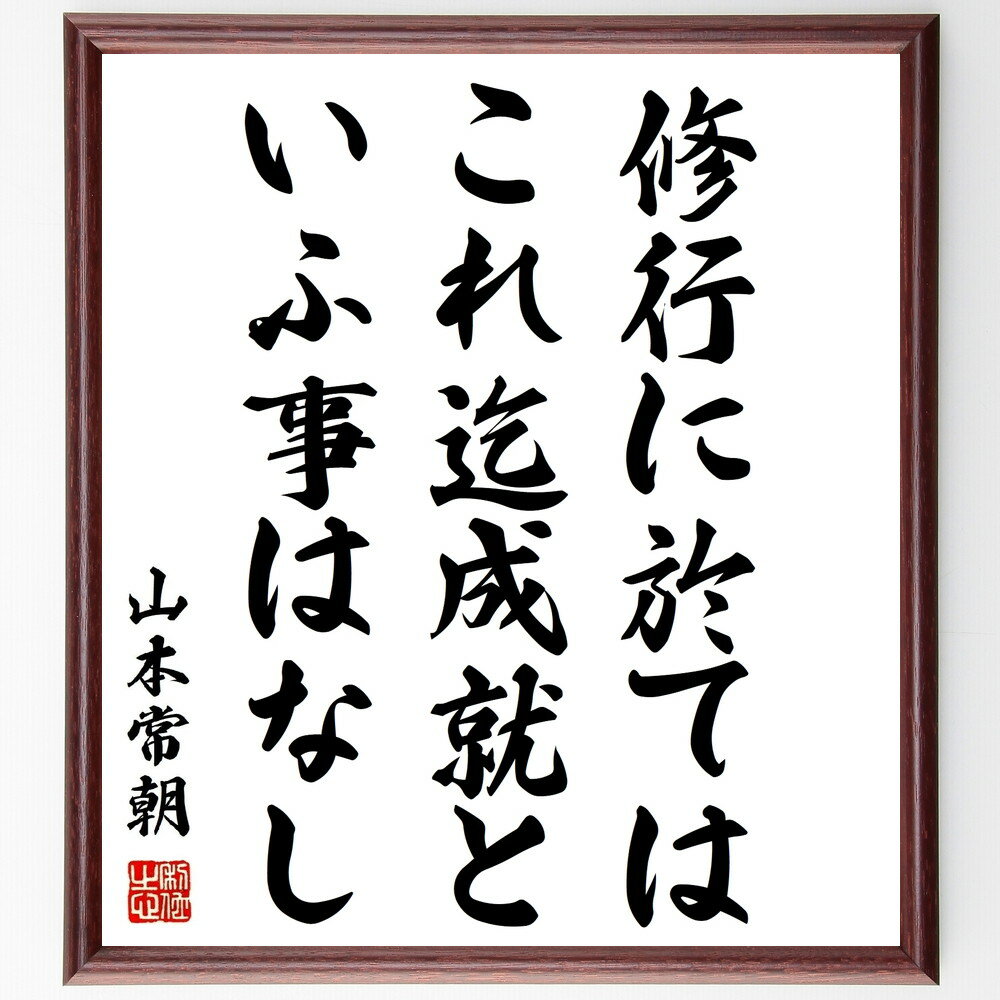 修行に於ては
これ迄成就と
いふ事はなし
山本常朝